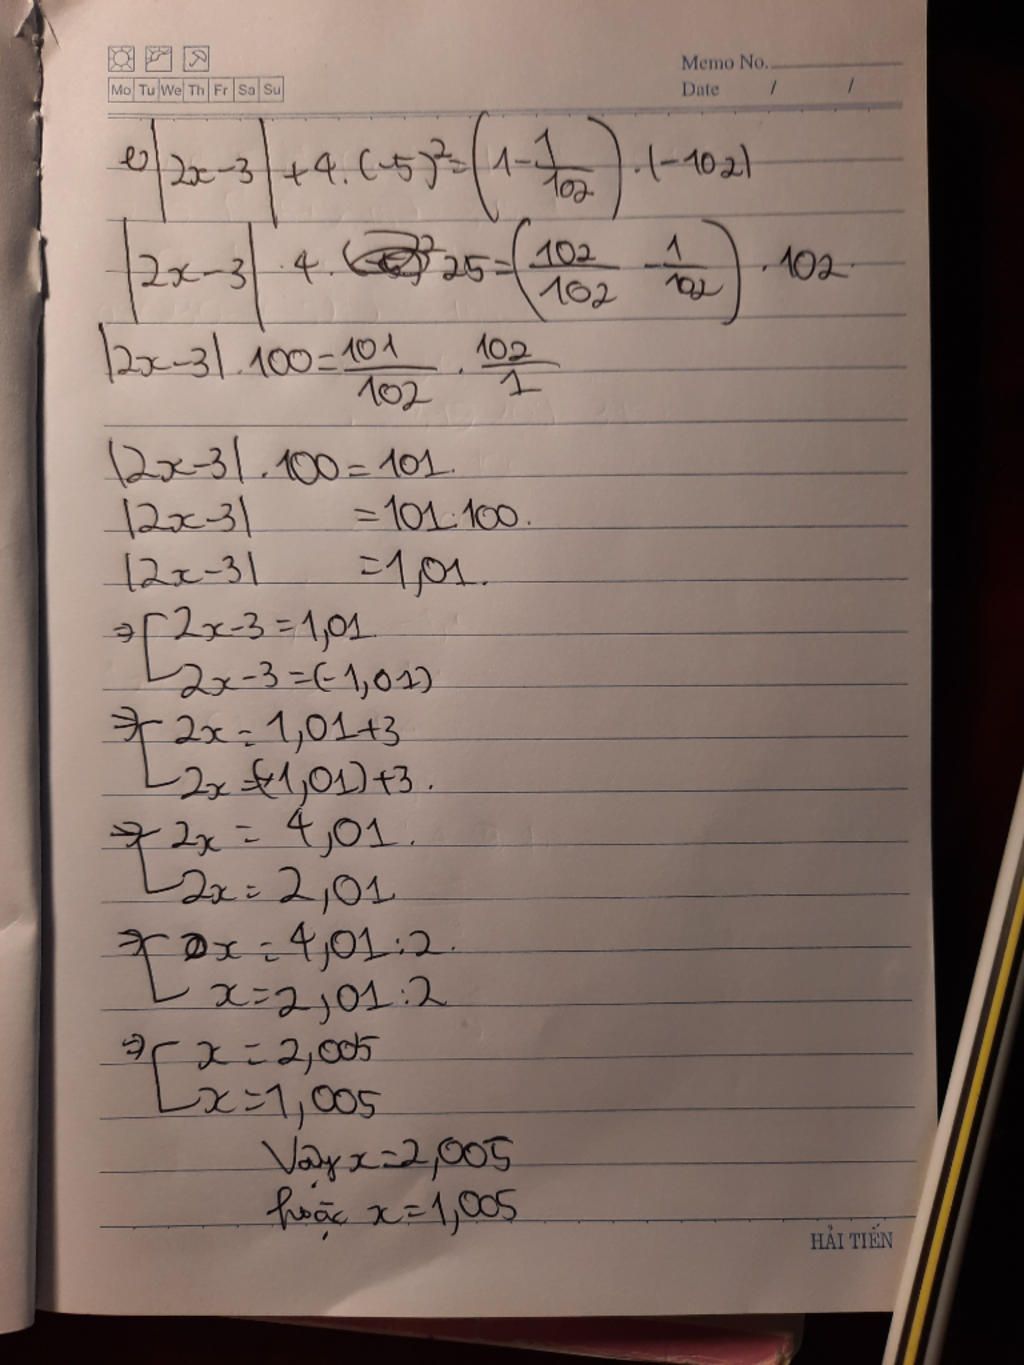 Memo No.
Mo Tu We Th Fr Sa Su
Date / /
e) |2x-3| + 4.(-5)² = (1 - 1/102) . |-102|
|2x-3| . 4 . 25 = (102/102 - 1/102) . 102
|2x-3| . 100 = 101/102 . 102/1
|2x-3| . 100 = 101.
|2x-3| = 101:100.
|2x-3| = 1,01.
⇒ [ 2x-3 = 1,01
2x-3 = (-1,01)
⇒ [ 2x = 1,01+3
2x = (-1,01)+3.
⇒ [ 2x = 4,01.
2x = 2,01
⇒ [ x = 4,01:2.
x = 2,01:2
⇒ [ x = 2,005
x = 1,005
Vậy x = 2,005
hoặc x = 1,005
HẢI TIẾN